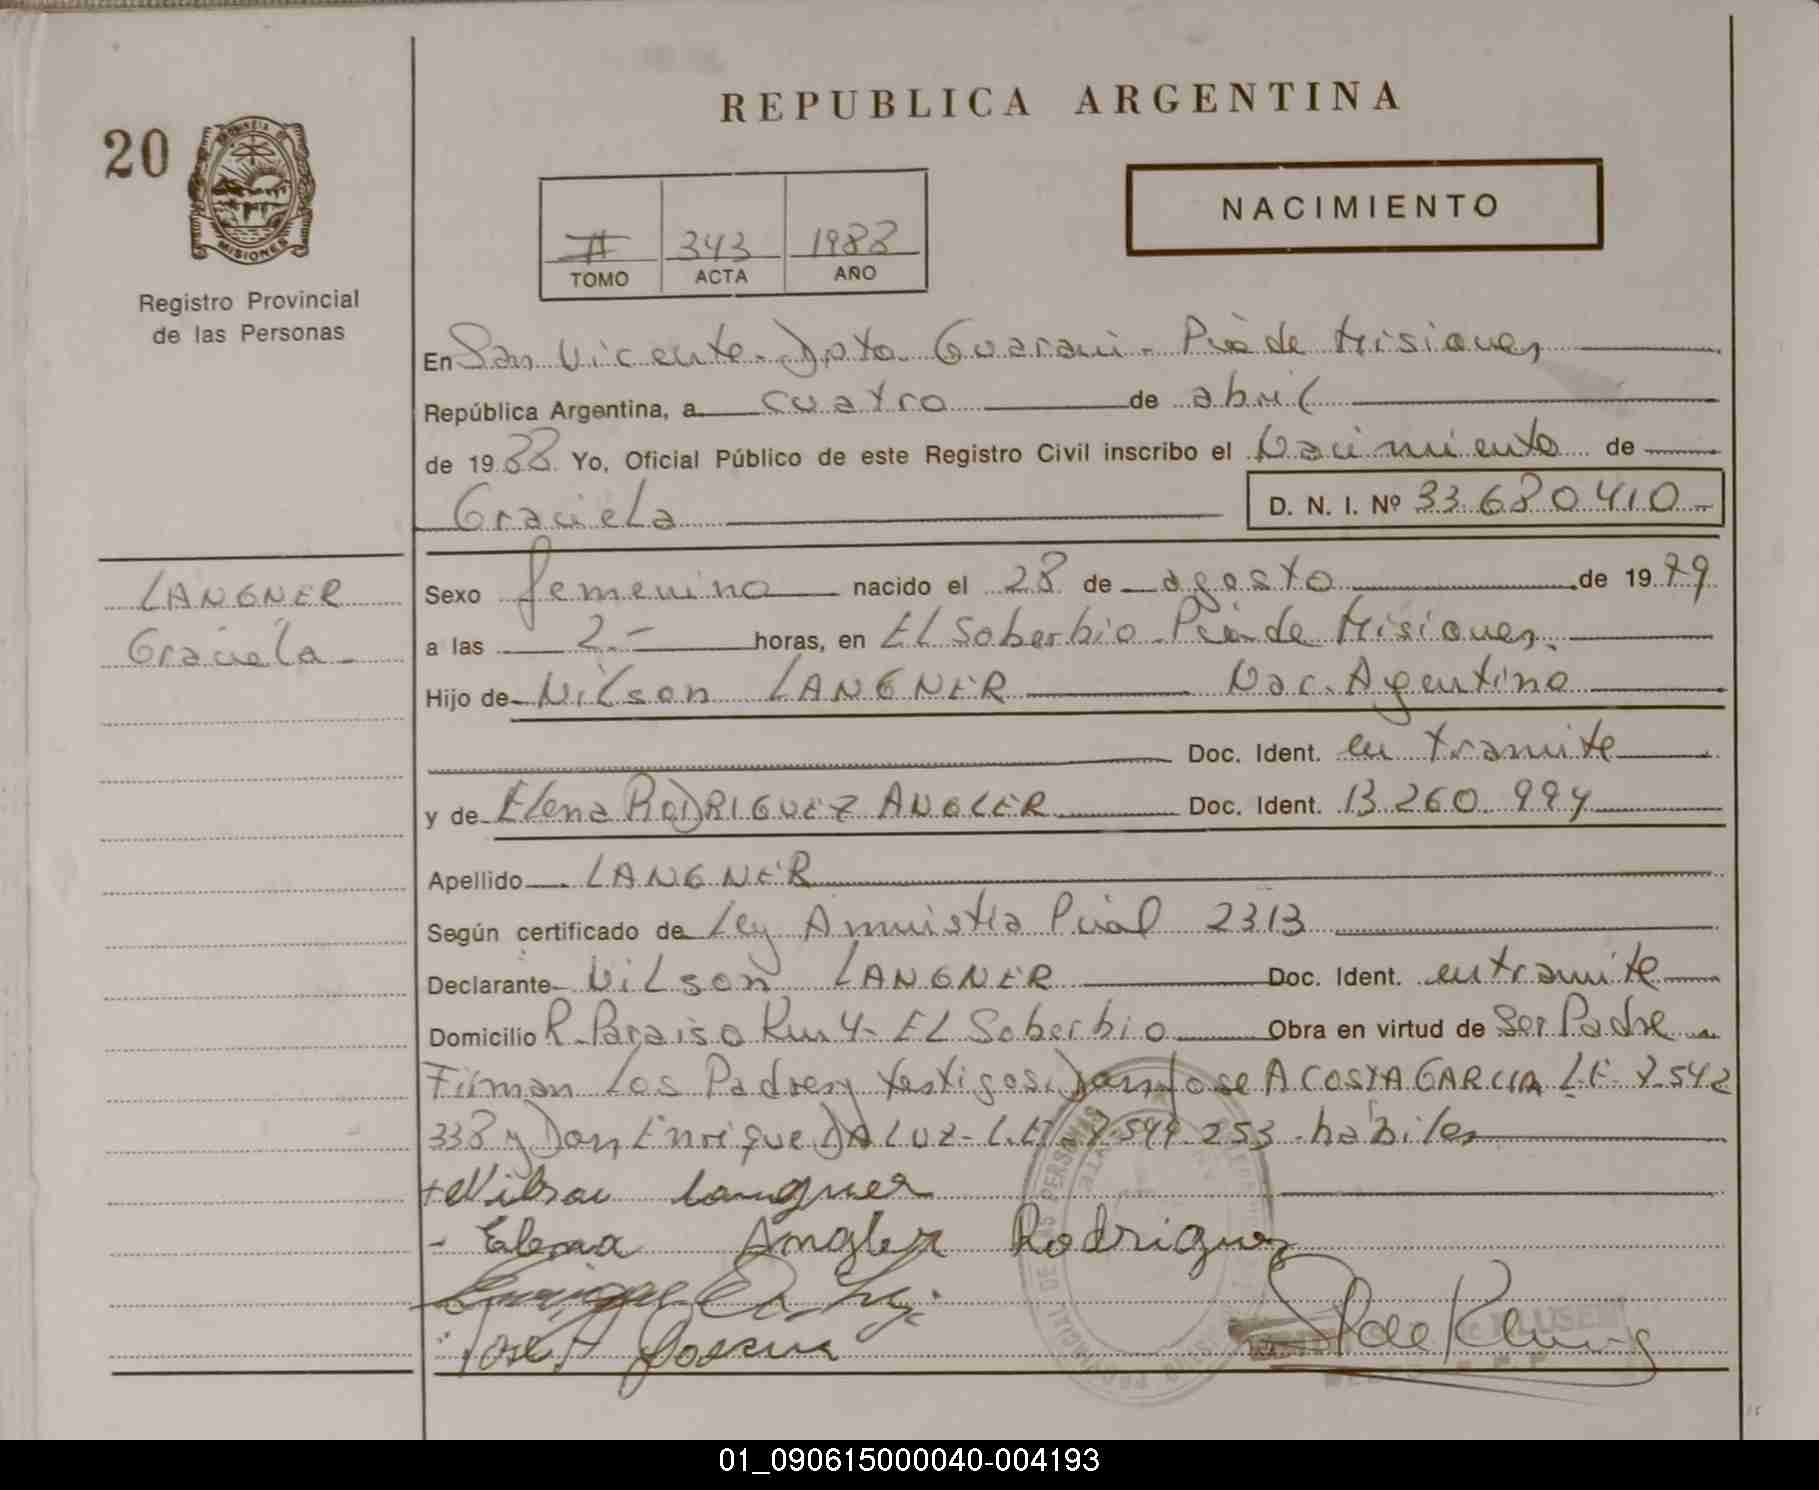 REPUBLICA ARGENTINA
20
PROVINCIA DE
MISIONES
Registro Provincial
de las Personas
NACIMIENTO
II 343 1988
TOMO ACTA AÑO
En San Vicente - Dpto Guarani - Pcia de Misiones
República Argentina, a cuatro de abril
de 1988 Yo, Oficial Público de este Registro Civil inscribo el Nacimiento de
Graciela D. N. I. Nº 33.680.410.-
LANGNER
Graciela.-
Sexo femenino nacido el 28 de agosto de 1979
a las 2.- horas, en EL Soberbio - Pcia de Misiones.
Hijo de Nilson LANGNER Nac. Agentino
Doc. Ident. en tramite
y de Elena RODRIGUEZ ANGLER Doc. Ident. 13.260.994
Apellido LANGNER
Según certificado de Ley Amnistia Pcial 2313
Declarante Nilson LANGNER Doc. Ident. en tramite
Domicilio P. Paraiso Km 4 - EL Soberbio Obra en virtud de Ser Padre
Firman Los Padres y testigos. Don Jose ACOSTA GARCIA L.E. 7.542
338 y Don Enrique DA LUZ - L.E. 7.544.253 - habiles
+ Nilson Langner
- Elena Angler Rodriguez
Enrique Da Luz
Jose A